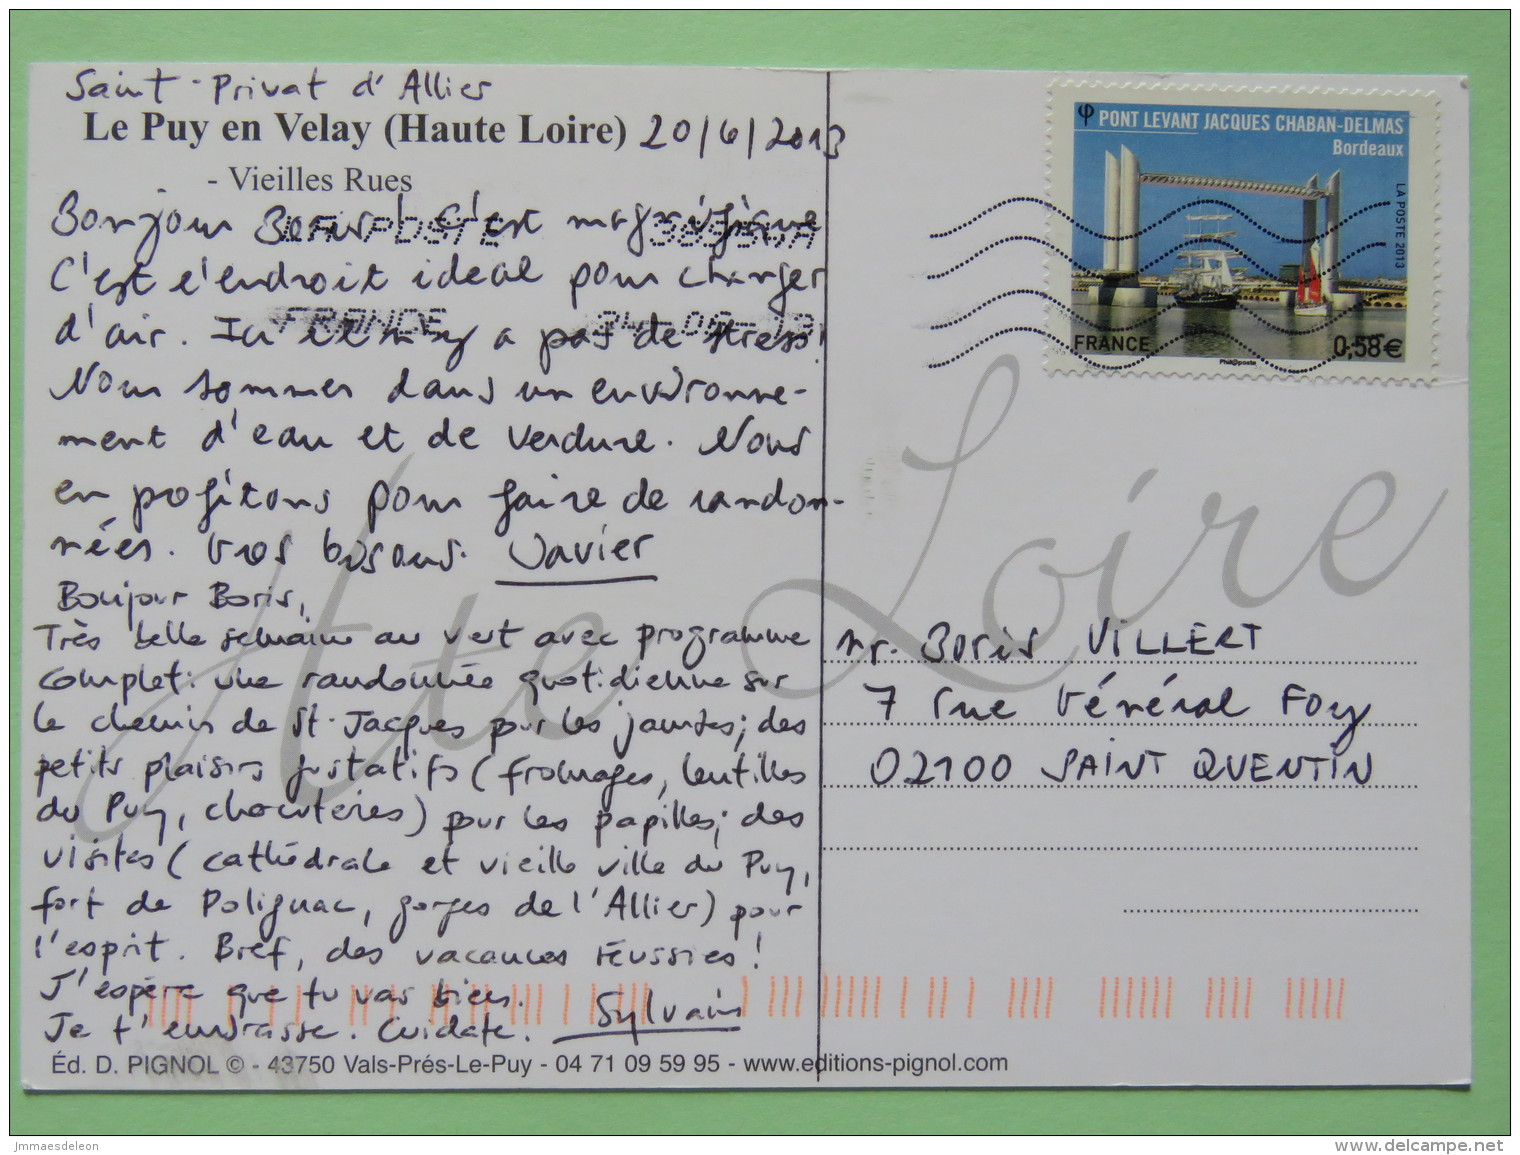 Saint-Privat d'Allier
Le Puy en Velay (Haute Loire) 20/6/2013
- Vieilles Rues
Bonjour Boris! C'est magnifique
LA POSTE 38350A
C'est l'endroit ideal pour changer
d'air. Ici il n'y a pas de stress!
FRANCE 24-06-13
Nous sommes dans un environne-
ment d'eau et de verdure. Nous
en profitons pour faire de randon-
nées. Gros bisous. Javier
Bonjour Boris,
Très belle semaine au vert avec programme
complet: une randonnée quotidienne sur
le chemin de St-Jacques pour les jambes; des
petits plaisirs gustatifs (fromages, lentilles
du Puy, charcuteries) pour les papilles; des
visites (cathédrale et vieille ville du Puy,
fort de Polignac, gorges de l'Allier) pour
l'esprit. Bref, des vacances réussies!
J'espère que tu vas bien.
Je t'embrasse. Cuidate. Sylvain
Éd. D. PIGNOL © - 43750 Vals-Prés-Le-Puy - 04 71 09 59 95 - www.editions-pignol.com
Hte Loire
φ PONT LEVANT JACQUES CHABAN-DELMAS
Bordeaux
LA POSTE 2013
FRANCE 0,58€
Phil@poste
Mr. Boris VILLERT
7 rue Général Foy
02100 SAINT QUENTIN
jmmaesdeleon
www.delcampe.net